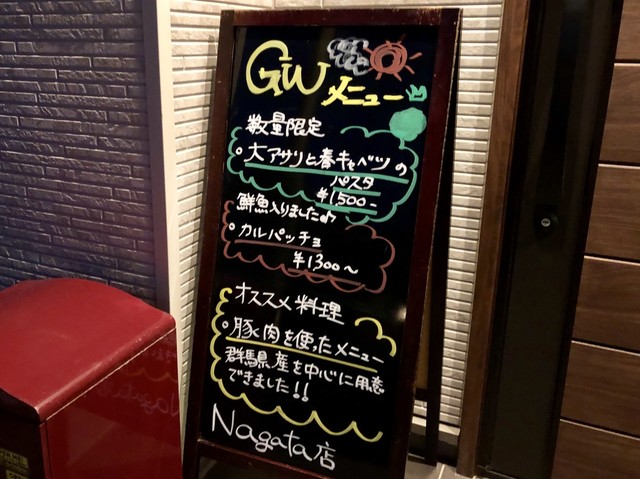 GW メニュー
数量限定
○ 大アサリと春キャベツの
パスタ
¥1500-
鮮魚入りました♪
○ カルパッチョ
¥1300〜
オススメ料理
○ 豚肉を使ったメニュー
群馬県産を中心に用意
できました!!
Nagata店